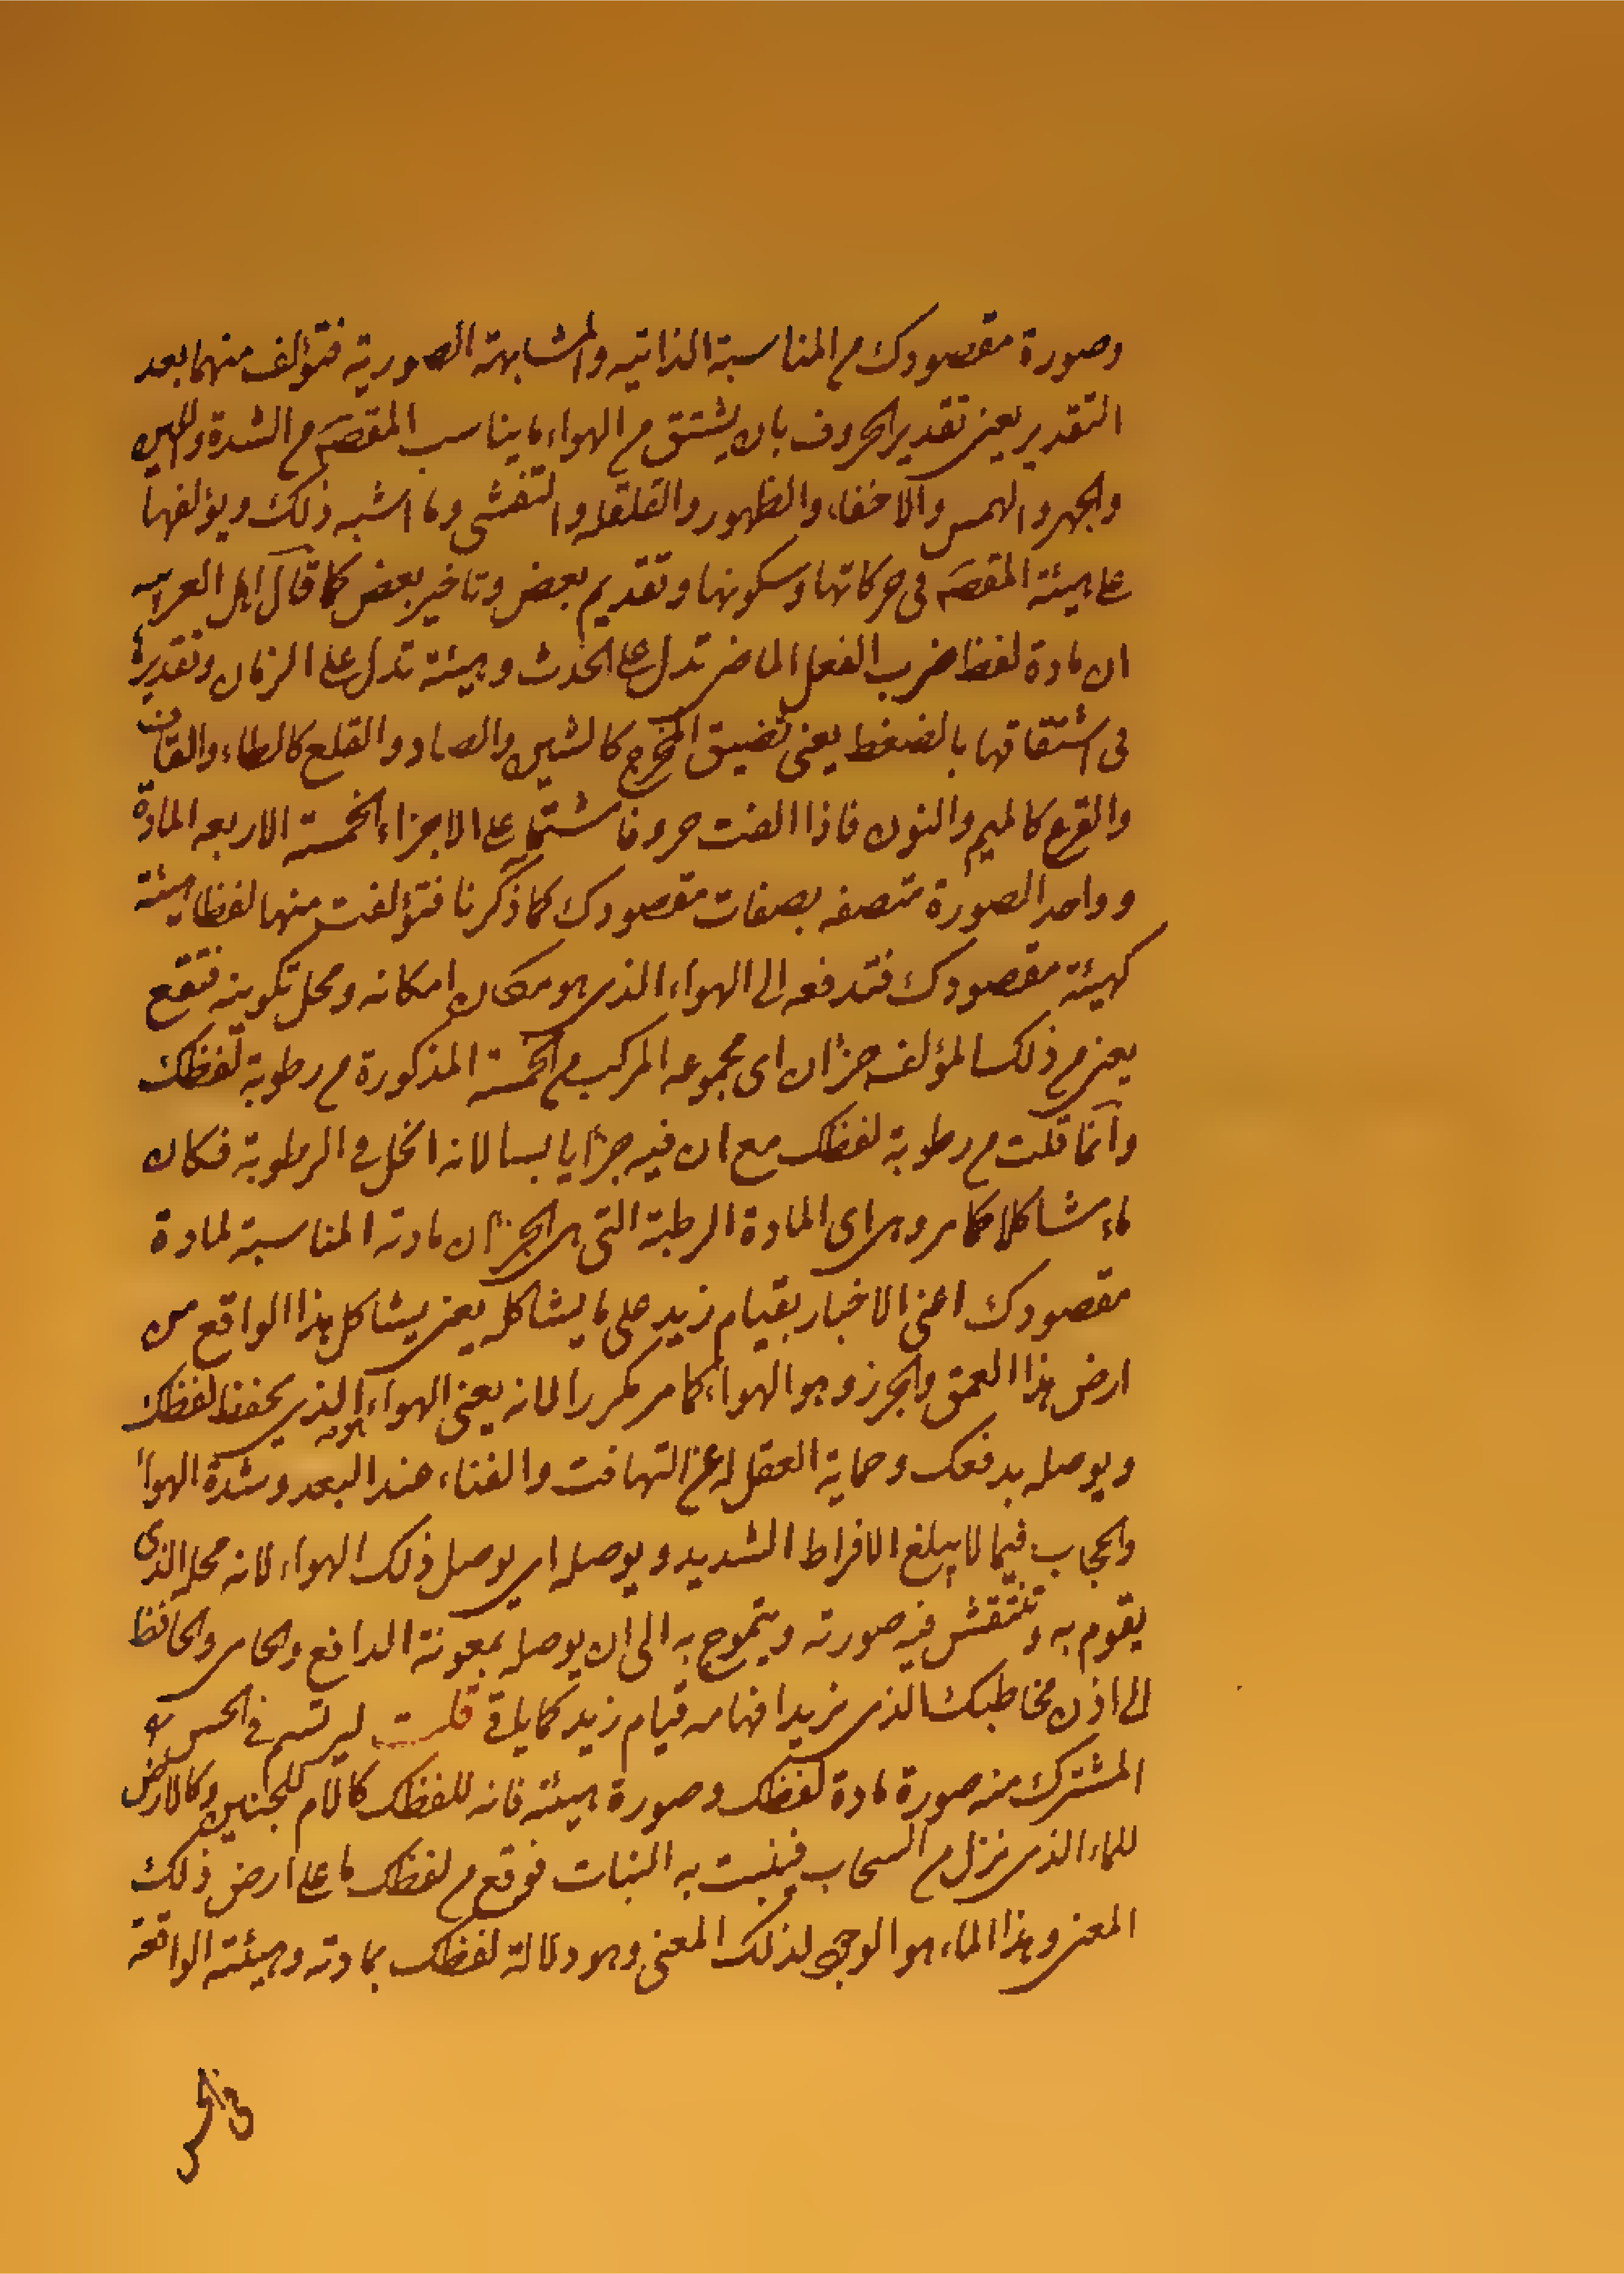 وصورة مقصودك من المناسبة الذاتيه والمشابهة الصورية فتؤلف منهما بعد
التقدير يعني تقدير الحروف بان يشتق من الهواء ما يناسب المقصَم من الشدة واللين
والجهر والهمس والاخفاء والظهور والقلقله والتفشي وما اشبه ذلك ويؤلفها
على هيئة المقصَم في حركاتها وسكونها وتقديم بعض وتاخير بعض كما قال اهل العربيه
ان مادة لفظ ضرب الفعل الماضي تدل على الحدث وهيئته تدل على الزمان وتقديرها
في اشتقاقها بالضغط يعني تضييق المخرج كالشين والصاد والقلع كالطاء والقاف
والقرع كالميم والنون فاذا الفت حروفا مشتملة على الاجزاء الخمسة الاربعه المادة
وواحد الصورة متصفه بصفات مقصودك كما ذكرنا فتؤلفت منها لفظا هيئته
كهيئة مقصودك فتدفعه الى الهواء الذي هو مكان امكانه ومحل تكوينه فتقع
يعني من ذلك المؤلف جزان اى مجموعه المركب من الخمسة المذكورة من رطوبة لفظك
وانما قلت من رطوبة لفظك مع ان فيه جزا يابسا لانه انحل في الرطوبة فكان
ماء مشاكلا كما مر وهي اى المادة الرطبة التي هي الجزان مادته المناسبة لمادة
مقصودك اعني الاخبار بقيام زيد على ما يشاكله يعني يشاكل هذا الواقع من
ارض هذا العمق والجرز وهو الهواء كما مر مكررا لانه يعني الهواء هو الذي يحفظ لفظك
ويوصله بدفعك وحماية العقل له عن التهافت والفناء عند البعد وشدة الهواء
والحجاب فيما لا يبلغ الافراط الشديد ويوصله اي يوصل ذلك الهواء لانه محله الذى
يقوم به وتنتقش فيه صورته ويتموج به الى ان يوصله بمعونة الدافع والحامي والحافظ
الى اذن مخاطبك الذي نريد افهامه قيام زيد كما ياتي قلت ليرتسم في الحس
المشترك منه صورة مادة لفظك وصورة هيئته فانه للفظك كالام للجنين وكالارض
للماء الذي نزل من السحاب فينبت به النبات فوقع من لفظك ماء على ارض ذلك
المعنى وهذا الماء هو الوجه لذلك المعنى وهو دلالة لفظك بمادته وهيئته الواقعة